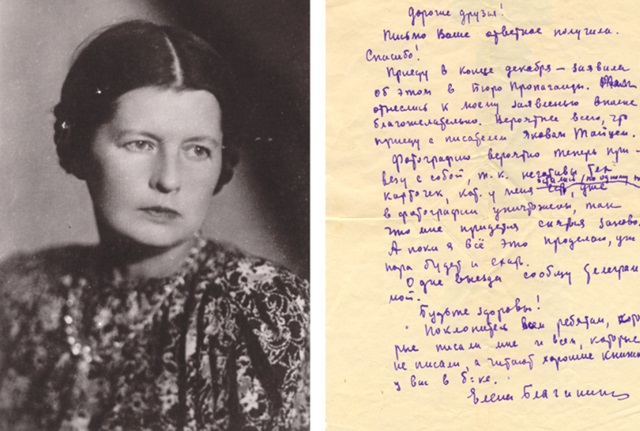 Дорогие друзья!
Письмо Ваше ответное получила.
Спасибо!
Приеду в конце декабря — заявила
об этом в Бюро Пропаганды.
отнеслись к моему заявленью вполне
благожелательно. Вероятнее всего, что
приеду с писателем Яковом Тайцем.
Фотографию вероятно теперь при-
везу с собой, т.к. негативы тех
карточек, кот. у меня уже
в фотографии уничтожены, так
что мне придется сняться заново.
А пока я всё это проделаю, уж
пора будет и ехать.
О дне выезда сообщу телеграм
мой.
Будьте здоровы!
Поклонитесь всем ребятам, кото
рые писали мне и всем, которые
не писали, а читают хорошие книжки
у вас в б-ке.
Елена Благинина